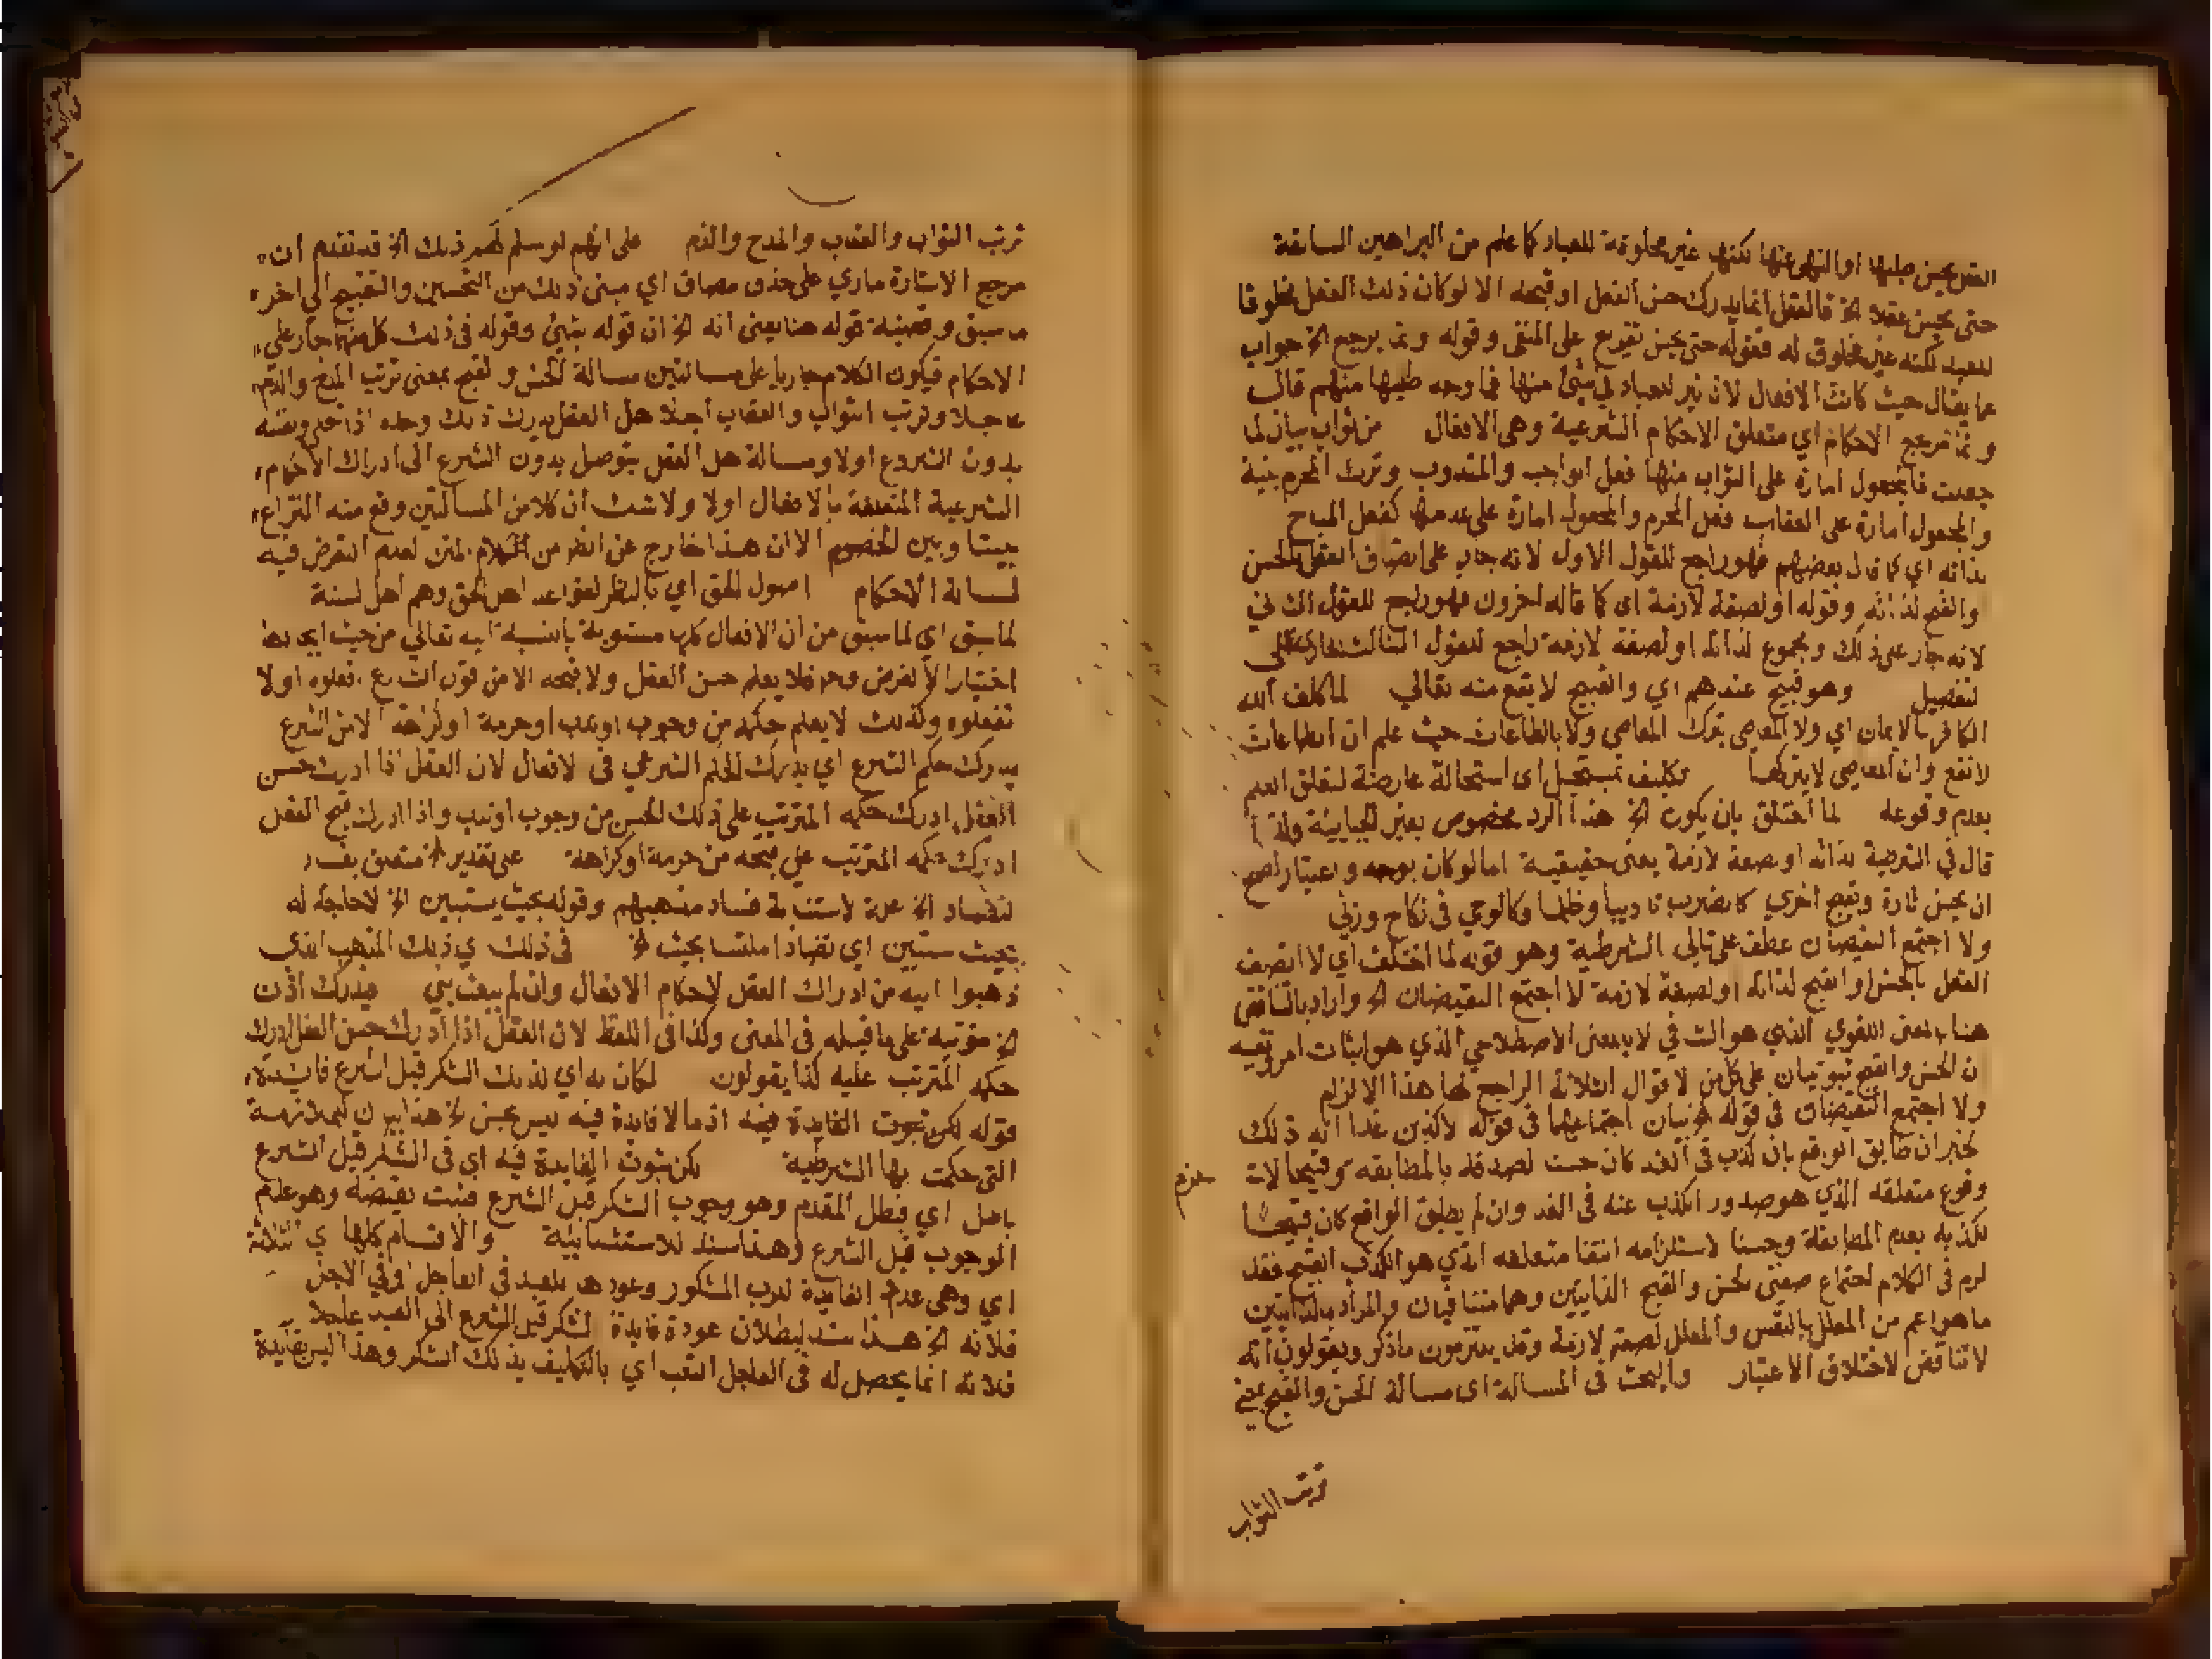 حتى يحسن عقلا الخ فالعقل انما يدرك حسن الفعل او قبحه الا لو كان ذلك الفعل مخلوقا
للعبد لكنه غير مخلوق له فقوله حتى يحسن تفريع على المنفى وقوله وبما يرجع الخ جواب
عما يقال حيث كانت الافعال لا تاثير للعباد في شئ منها فما وجه طلبها منهم قال
وبما مرجع الاحكام اي متعلق الاحكام الشرعية وهى الافعال من ثواب بيان لما
جعلت فالمجعول امارة على الثواب منها فعل الواجب والمندوب وترك المحرم بنية
والمجعول امارة على العقاب فعل المحرم والمجعول امارة على عدمهما كفعل المباح
لذاته اي كما قال بعضهم فهو راجع للقول الاول لانه جار على اتصاف الفعل بالحسن
والقبح لذاته وقوله او لصفة لازمة اى كما قاله اخرون فهو راجع للقول الثاني
لانه جار على ذلك ومجموع لذاته او لصفة لازمة راجع للقول الثالث
لتفصيل وهو قبيح عندهم اي والقبيح لا يقع منه تعالي لما كلف الله
الكافر بالايمان اي ولا العاصى بترك المعاصي ولا بالطاعات حيث علم ان الطاعات
لا تقع وان المعاصي لا يتركها تكليف بمستحيل اى استحالة عارضة لتعلق العلم
بعدم وقوعه لما اختلق بان يكون الخ هذا الرد مخصوص بغير الجبايية
قال في الشرطية لذاته او صفة لازمة يعنى حقيقية اما لو كان بوجه واعتبار لصح
ان يحسن تارة ويقبح اخرى كالضرب تاديبا وظلما وكالوطي فى نكاح وزنى
ولا اجتمع النقيضان عطف على تالى الشرطية وهو قوله لما اختلف اي لا اتصف
الفعل بالحسن او القبح لذاته او لصفة لازمة لا اجتمع النقيضان الخ واراد بالتناقض
هنا بالمعنى اللغوي الذى هو التنافي لا بالمعنى الاصطلاحي الذي هو اثبات امر ونفيه
ن الحسن والقبح ثبوتيان على كل من الاقوال الثلاثة الراجع لها هذا الالزام
ولا اجتمع النقيضان في قوله بيان اجتماعهما فى قوله لاكذبن غدا انه ذلك
لخبر ان طابق الواقع بان كذب فى الغد كان حسنا لصدقه بالمطابقة وقبيحا لاستلزام
وقوع متعلقه الذي هو صدور الكذب عنه فى الغد وان لم يطابق الواقع كان قبيحا
لكذبه بعدم المطابقة وحسنا لاستلزامه انتفا متعلقه الذي هو الكذب القبيح فقد
لزم فى الكلام اجتماع صفتى الحسن والقبح الذاتيين وهما متنافيان والمراد بالذاتيين
ما هو اعم من المعلل بالنفس والمعلل لصفة لازمة وقد يلتزمون ما ذكر ويقولون انه
لا تناقض لاختلاف الاعتبار والبحث فى المسالة اى مسالة الحسن والقبح بمعنى
ترتب الثواب
ترتب الثواب والعقاب والمدح والذم على انهم لو سلم لهم ذلك الخ قد تقدم ان
مرجع الاشارة ماري على حذف مضاف اي مبنى ذلك من التحسين والتقبيح الى اخر
ما سبق وقضية قوله هنا يعنى انه الخ ان قوله بشئ وقوله فى ذلك كل منهما جار على
الاحكام فيكون الكلام جاريا على مسالتين مسالة الحسن والقبح بمعنى ترتب المدح والذم
عاجلا وترتب الثواب والعقاب اجلا هل العقل يدرك ذلك وحده
بدون الشروع اولا ومسالة هل العقل يتوصل بدون الشرع الى ادراك الاحكام
الشرعية المتعلقة بالافعال اولا ولا شك ان كلا من المسالتين وقع منه النزاع
بيننا وبين الخصوم الا ان هذا خارج عن النظر من الكلام المتن لعدم التعرض فيه
لمسالة الاحكام اصول الحق اي بالنظر لقواعد اهل الحق وهم اهل السنة
لما سبق اي لما سبق من ان الافعال كلها مستوية بالنسبة اليه تعالي من حيث ايجادها
اختيارا لا لغرض وح فلا يعلم حسن الفعل ولا قبحه الا من قول الشارع افعلوه او لا
تفعلوه وكذلك لا يعلم حكمه من وجوب او ندب او حرمة او كراهة الا من الشرع
يدرك حكم الشرع اي يدرك الحكم الشرعي فى الافعال لان العقل اذا ادرك حسن
الفعل ادرك حكمه المترتب على ذلك الحسن من وجوب او ندب واذا ادرك قبح الفعل
ادرك حكمه المترتب علي قبحه من حرمة او كراهة على تقدير الخ متعلق
لفساد الخ علة لاستبانة فساد مذهبهم وقوله بحيث يستبين الخ لا حاجة له
بحيث يستبين اي فسادا ملتبسا بحيث الخ فى ذلك اي ذلك المذهب الذى
ذهبوا اليه من ادراك العقل لاحكام الافعال وان لم يبعث نبي فيدرك اذن
الخ مرتبة على ما قبله فى المعنى وكذا فى اللفظ لان العقل اذا ادرك حسن الفعل ادرك
حكمه المترتب عليه كذا يقولون لكان له اي لذلك الشكر قبل الشرع فايدة
قوله لكن ثبوت الفايدة فيه اذ ما لا فايدة فيه ليس بحسن الخ هذا بيان للملازمة
التى حكمت بها الشرطية لكن ثبوت الفايدة فيه اي فى الشكر قبل الشرع
باطل اي فبطل المقدم وهو وجوب الشكر قبل الشرع فثبت نقيضه وهو عدم
الوجوب قبل الشرع وهذا سند للاستثنائية والاقسام كلها اي الثلاثة
اي وهى عدم الفايدة للرب المشكور وعودها للعبد فى العاجل او في الاجل
فلانه الخ هذا سند لبطلان عودة فايدة الشكر قبل الشرع الى العبد عاجلا
فلانه انما يحصل له فى العاجل التعب اي بالتكليف بذلك الشكر وهذا ليس بفايدة